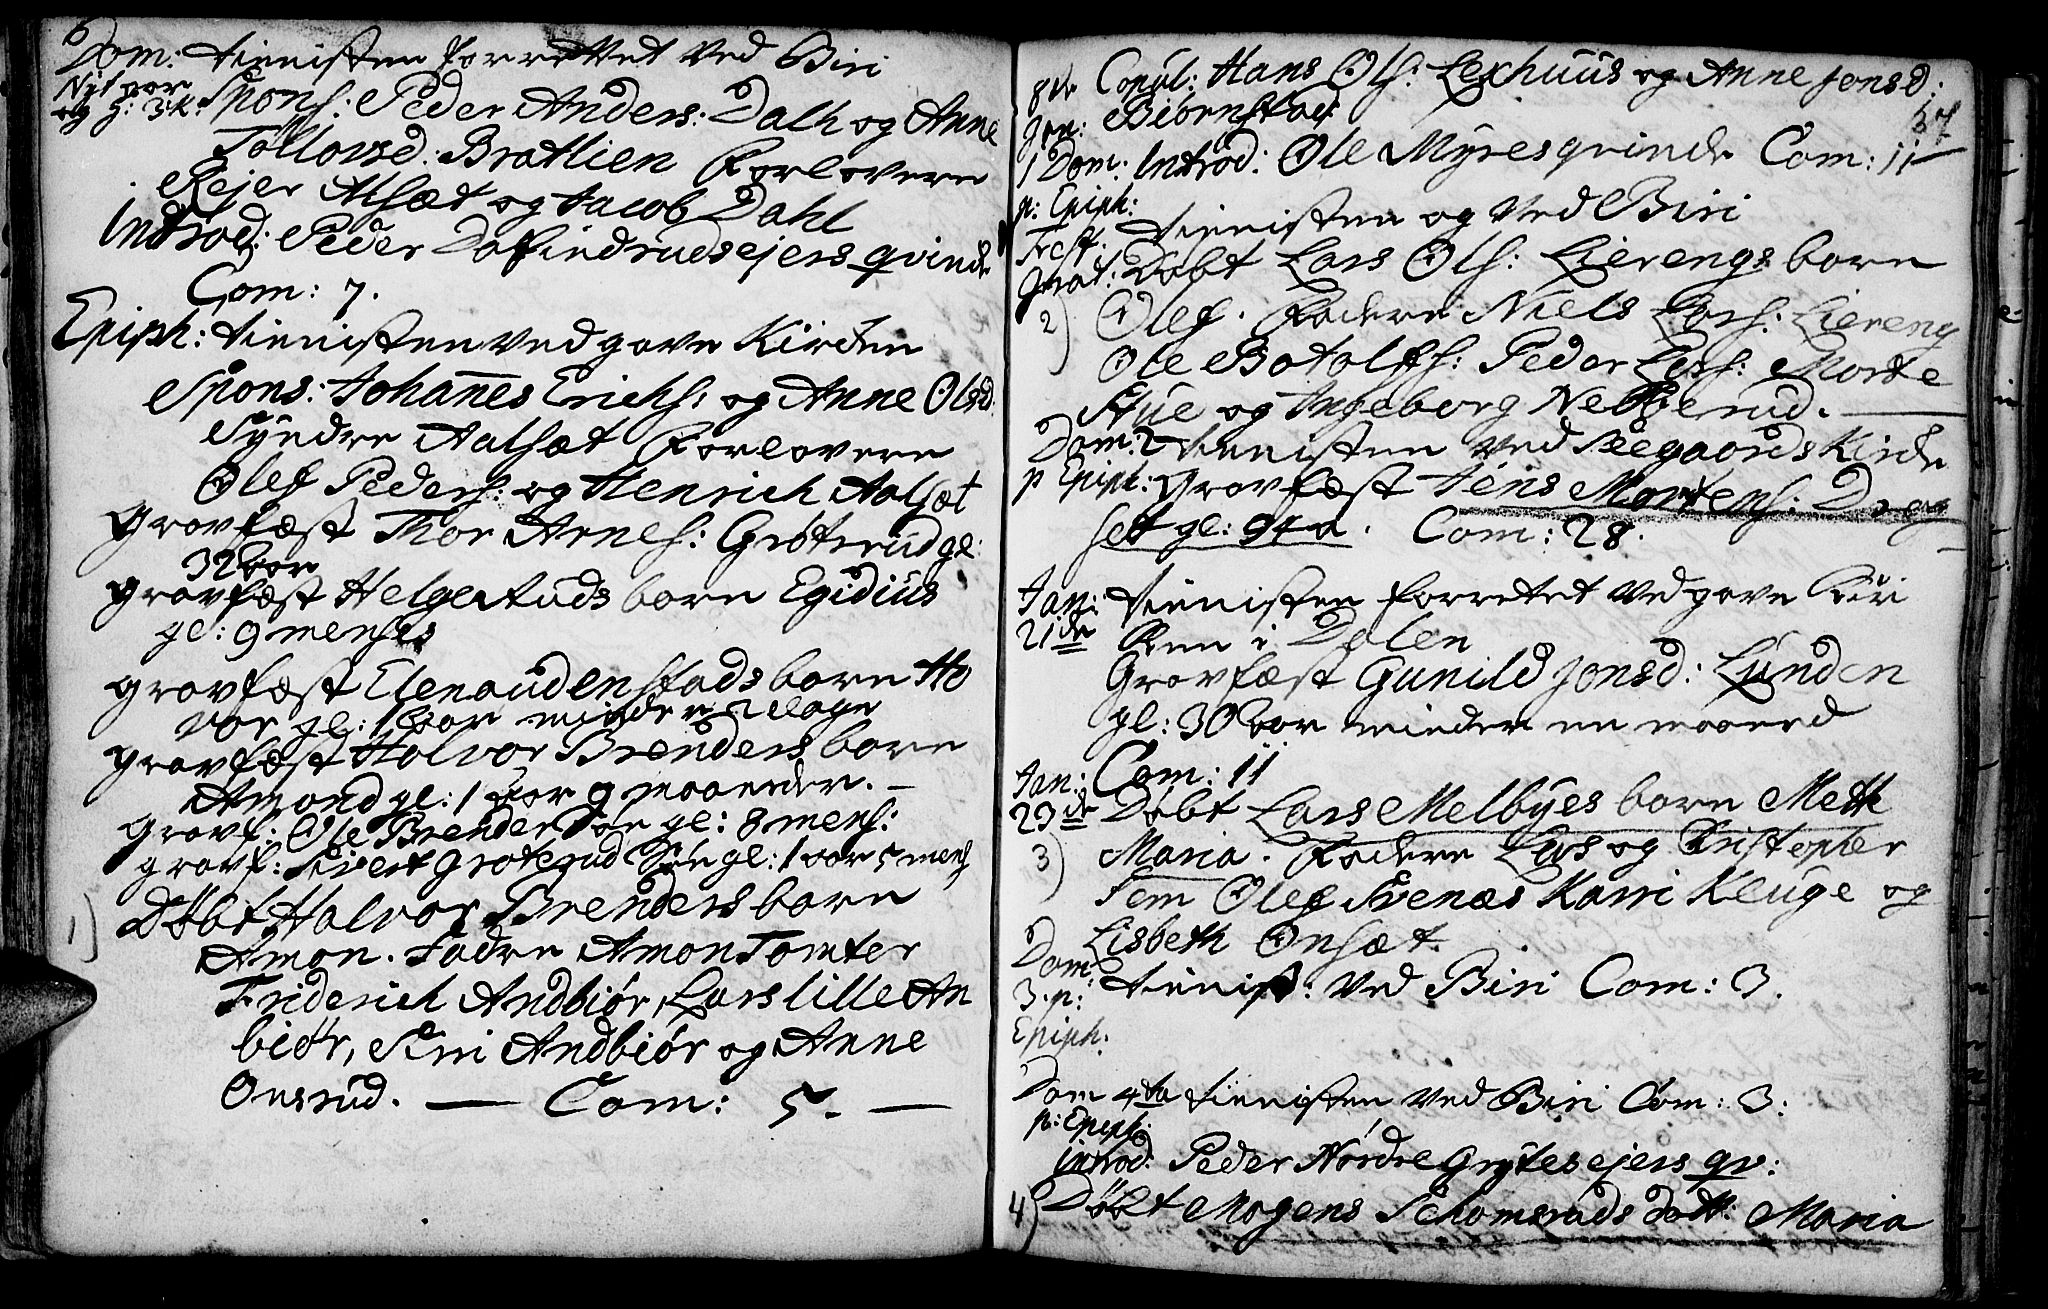 Dom: tienisten forrettet ved Biri
Nyt aar
og H: 3 K: Spons: Peder Anders: Dalh og Anne
Tollovsd: Bratlien Forlovere
Rejer Alsæt og Jacob Dahl
Introd: Peder Dafindruds ejers qvinde
Com: 7.
Epiph: tienisten ved gave Kirchen
Spons: Johannes Erichs: og Anne Olsd.
Syndre Aalsæt Forlovere
Olef Peders: og Henrich Aalsæt
Gravfæst Thor Arnes: Grøtsrud gl:
32 aar
gravfæst Helge Ruds barn Egidius
gl: 9 menses
gravfæst Elen audenstads barn Ho
vor gl: 1 aar minder 2 dage
gravfæst Halvor Brenders barn
Amond gl: 1 aar 9 maaneder. —
Gravf: Ole Brender Søn gl: 8 mens:
gravf: Sivert Grøterud Søn gl: 1 aar 5 mens
1) Døbt Halvor Brenders barn
Amon. Fadre Amon Tomter
Friderich Andbiør, Lars lille An
biør, Siri Andbiør og Anne
Onsrud. — Com: 5. —
8de Copul: Hans Ols: Lexhuus og Anne Jonsd:
Jan: Biørnstad
37
1 Dom. Introd: Ole Myres qvinde Com: 11
p: Epiph:
tienisten og ved Biri
Fest.
Døbt Lars Ols: Lierengs barn
2) Olef. Fadere Niels Lars: Liereng
Ole Botolfs: Peder Lars: Marte
Stue og Ingeborg Neberud. —
Dom. 2 tienisten ved Reegaards Kirche
p Epiph: gravfæst Jens Mortens: Drag
set gl: 94 a. Com: 28.
Jan: tienisten forrettet ved gave Kir
21de Ken i Dalen
Gravfæst Gunild Jonsd: Lunden
gl: 30 aar minder en maaned
Com: 11
Jan:
23de Døbt Lars Melbyes barn Mette
3) Maria. Fadere Lars og Christopher
Fem Olef Svenæs Karri Kluge og
Lisbeth Onsæt.
Dom
3. p: tienist: ved Biri Com: 3.
Epiph.
Dom 4ta tienisten ved Biri Com: 3:
p: Epiph:
Introd: Peder Nørdre Grytes ejers qv:
4) Døbt Mogens Schomsruds dott: Maria